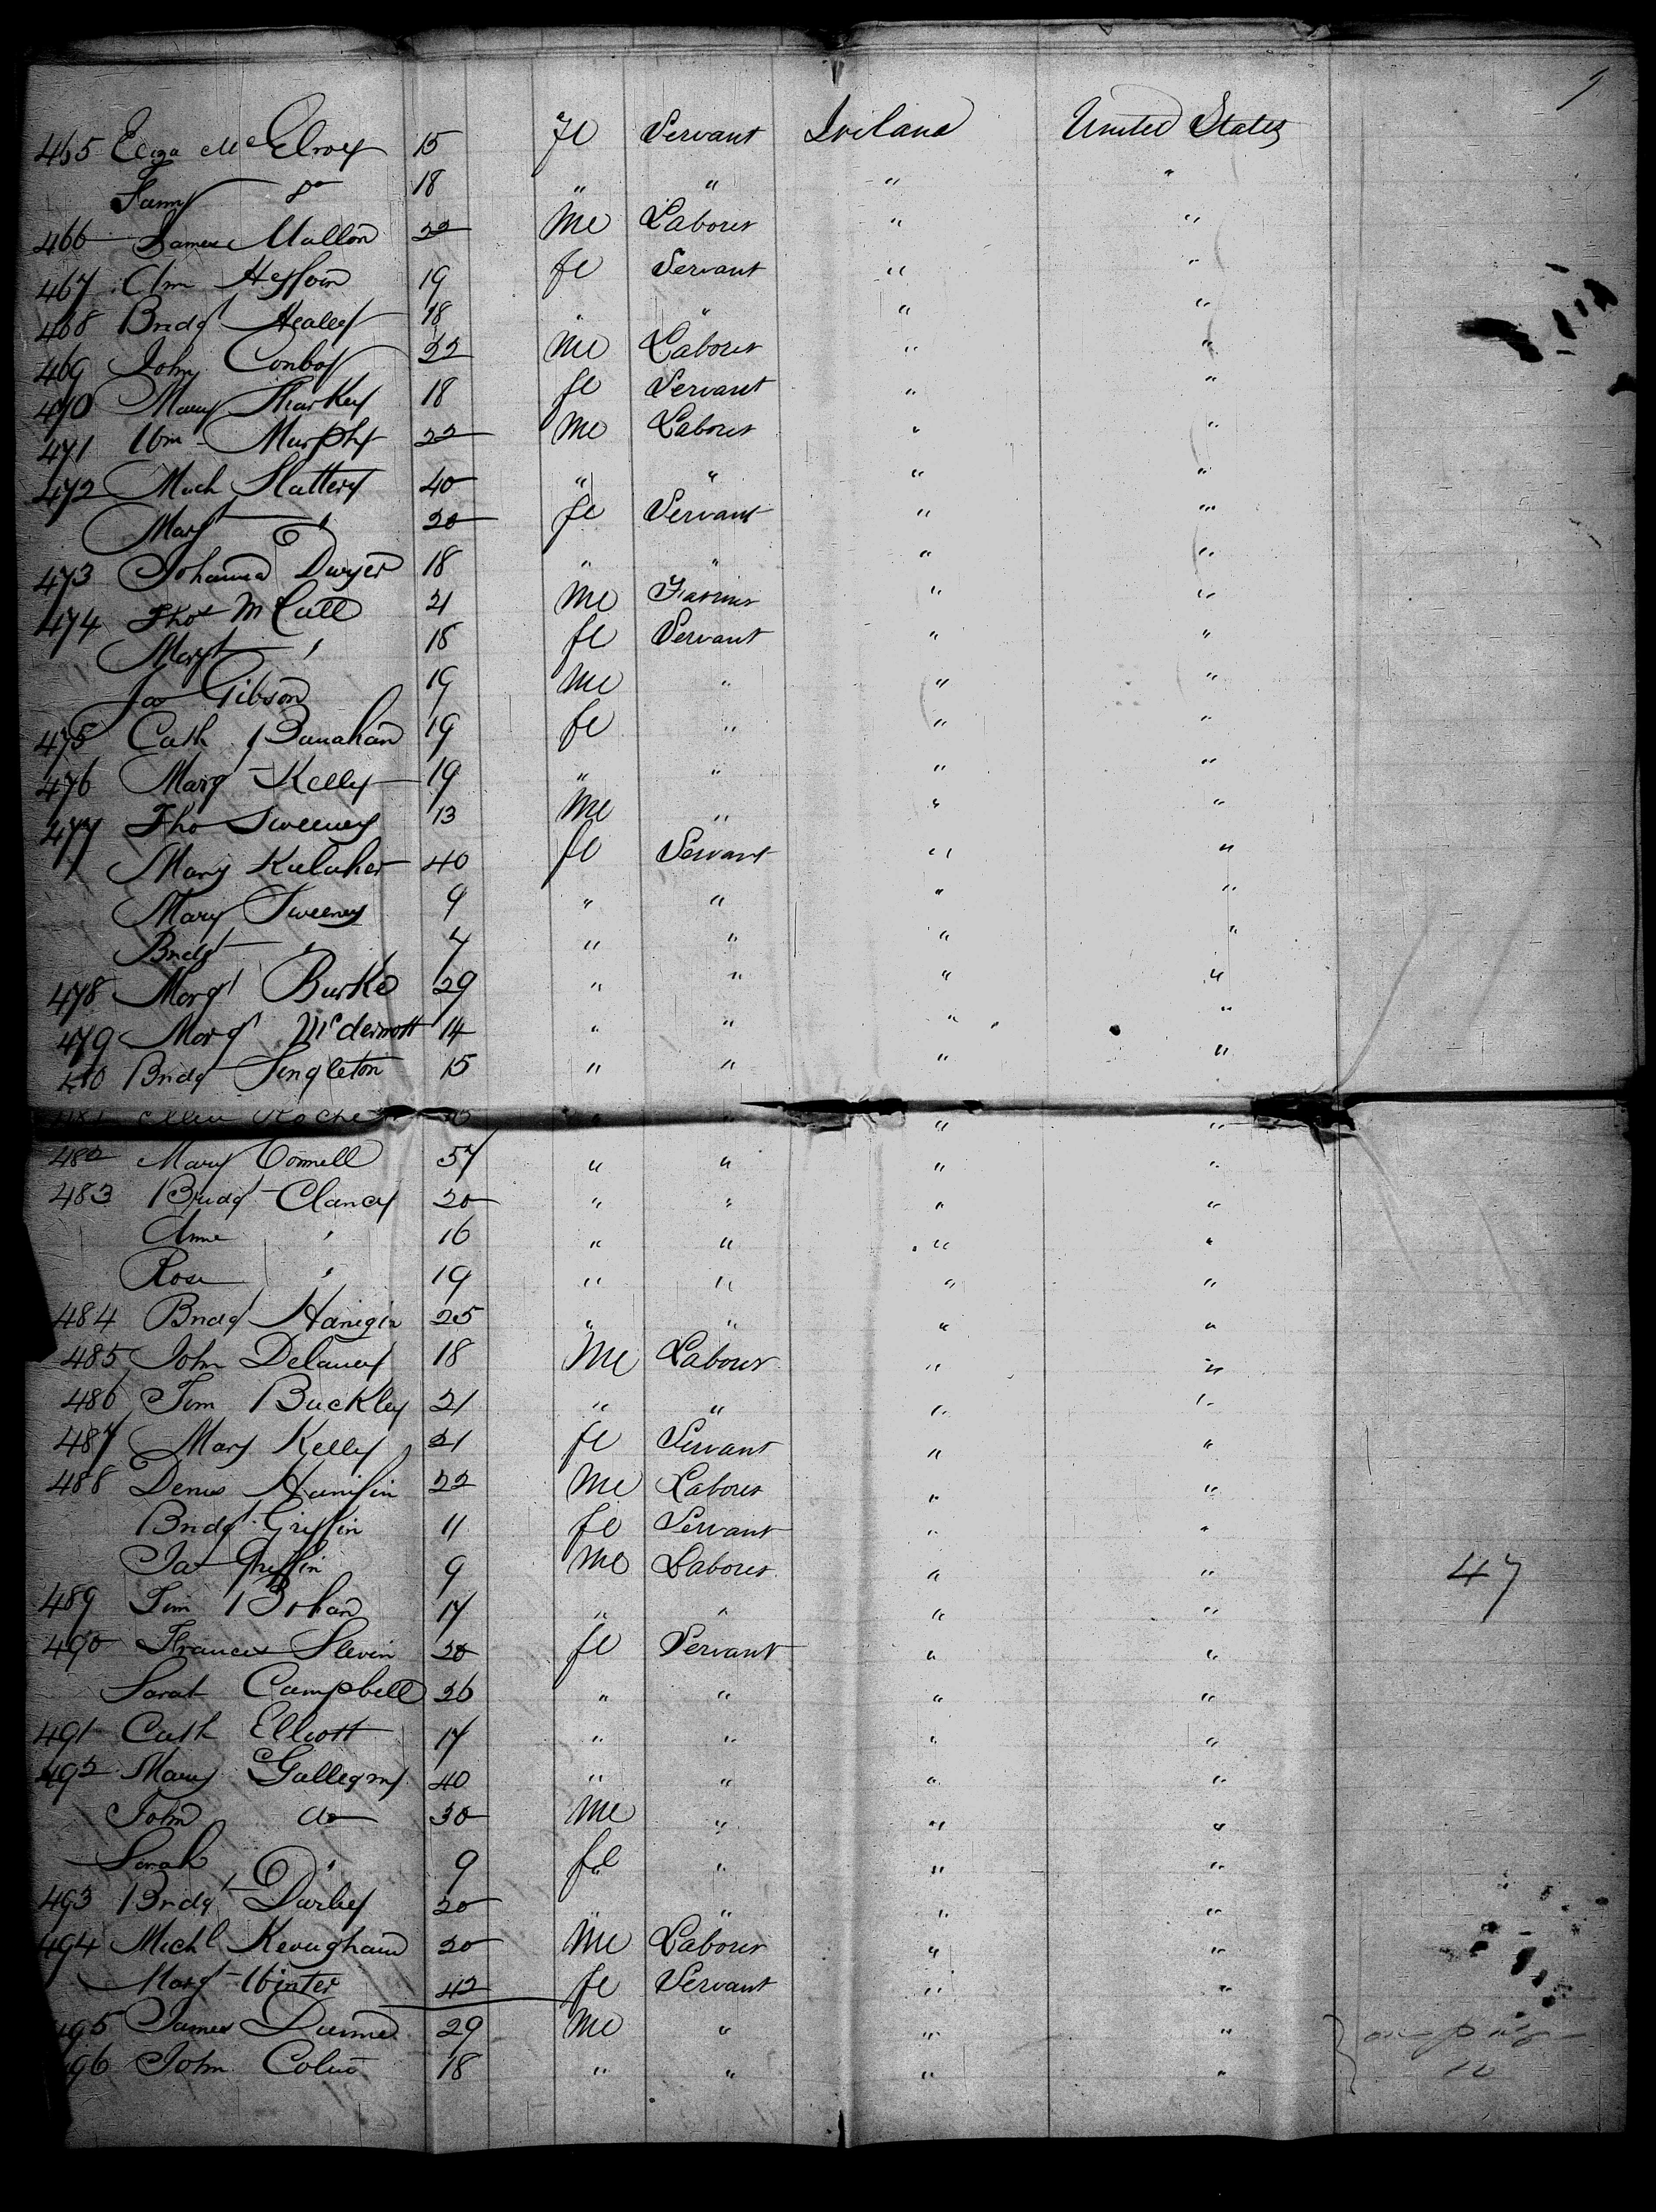 465 Eliza McElroy 15 fe Servant Ireland United States
Fanny Do 18 " " " "
466 James Mallon 22 Me Laborer " "
467 Ann Heffron 19 fe Servant " "
468 Bridgt Healey 18 " " " "
469 John Conboy 22 Me Laborer " "
470 Mary Sharkey 18 fe Servant " "
471 Wm Murphy 22 Me Laborer " "
472 Mich Slattery 40 " " " "
Margt " 20 fe Servant " "
473 Johanna Dwyer 18 " " " "
474 Thos McCall 21 Me Farmer " "
Margt " 18 fe Servant " "
Jas Gibson 19 Me " " "
475 Cath Banahan 19 fe " " "
476 Margt Kelly 19 " " " "
477 Tho Sweeney 13 Me " " "
Mary 40 fe Servant " "
Mary Sweeney 9 " " " "
Bridgt " 7 " " " "
478 Margt Burke 29 " " " "
479 Margt McDermott 14 " " " "
480 Bridgt Singleton 15 " " " "
481 Ellen Roche " " " "
482 Mary Connell 57 " " " "
483 Bridgt Clancy 20 " " " "
Anne " 16 " " " "
Rose " 19 " " " "
484 Bridgt Hanigin 25 " " " "
485 John Delaney 18 Me Laborer " "
486 Tim Buckley 21 " " " "
487 Mary Kelly 21 fe Servant " "
488 Denis Hanifin 22 Me Laborer " "
Bridgt Griffin 11 fe Servant " "
Jas Griffin 9 Me Laborer " " 47
489 Tim Bohan 17 " " " "
490 Frances Slevin 20 fe Servant " "
Sarah Campbell 26 " " " "
491 Cath Elliott 17 " " " "
492 Mary 40 " " " "
John do 30 Me " " "
Sarah " 9 fe " " "
493 Bridgt Darby 20 " " " "
494 Michl Keoughan 20 Me Laborer " "
Margt Winter 42 fe Servant " "
495 James Dunne 29 Me " " "
496 John 18 " " " "